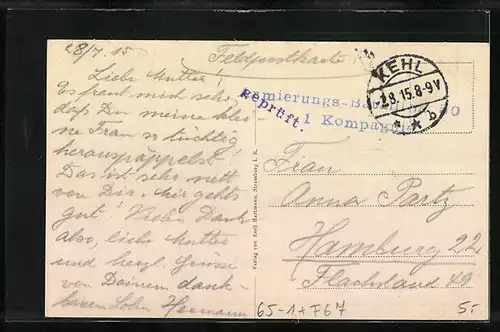 28/7 15
Feldpostkarte
Liebe Mutter!
Es freut mich sehr,
daß Du meine klei
ne Frau so tüchtig
herauspäppelst!
Das ist sehr nett
von Dir. Mir gehts
gut! Vielen Dank
also, liebe Mutter
und herzl. Grüsse
von Deinem dank-
baren Sohn Hermann
Verlag von Emil Hartmann, Strassburg i. E.
KEHL
2.8.15.8-9V
* * b
Armierungs-Bataillon 0
1 Kompagnie
Geprüft.
Frau
Anna Partz
Hamburg 22
Flachsland 49
65-1+F67
5.-